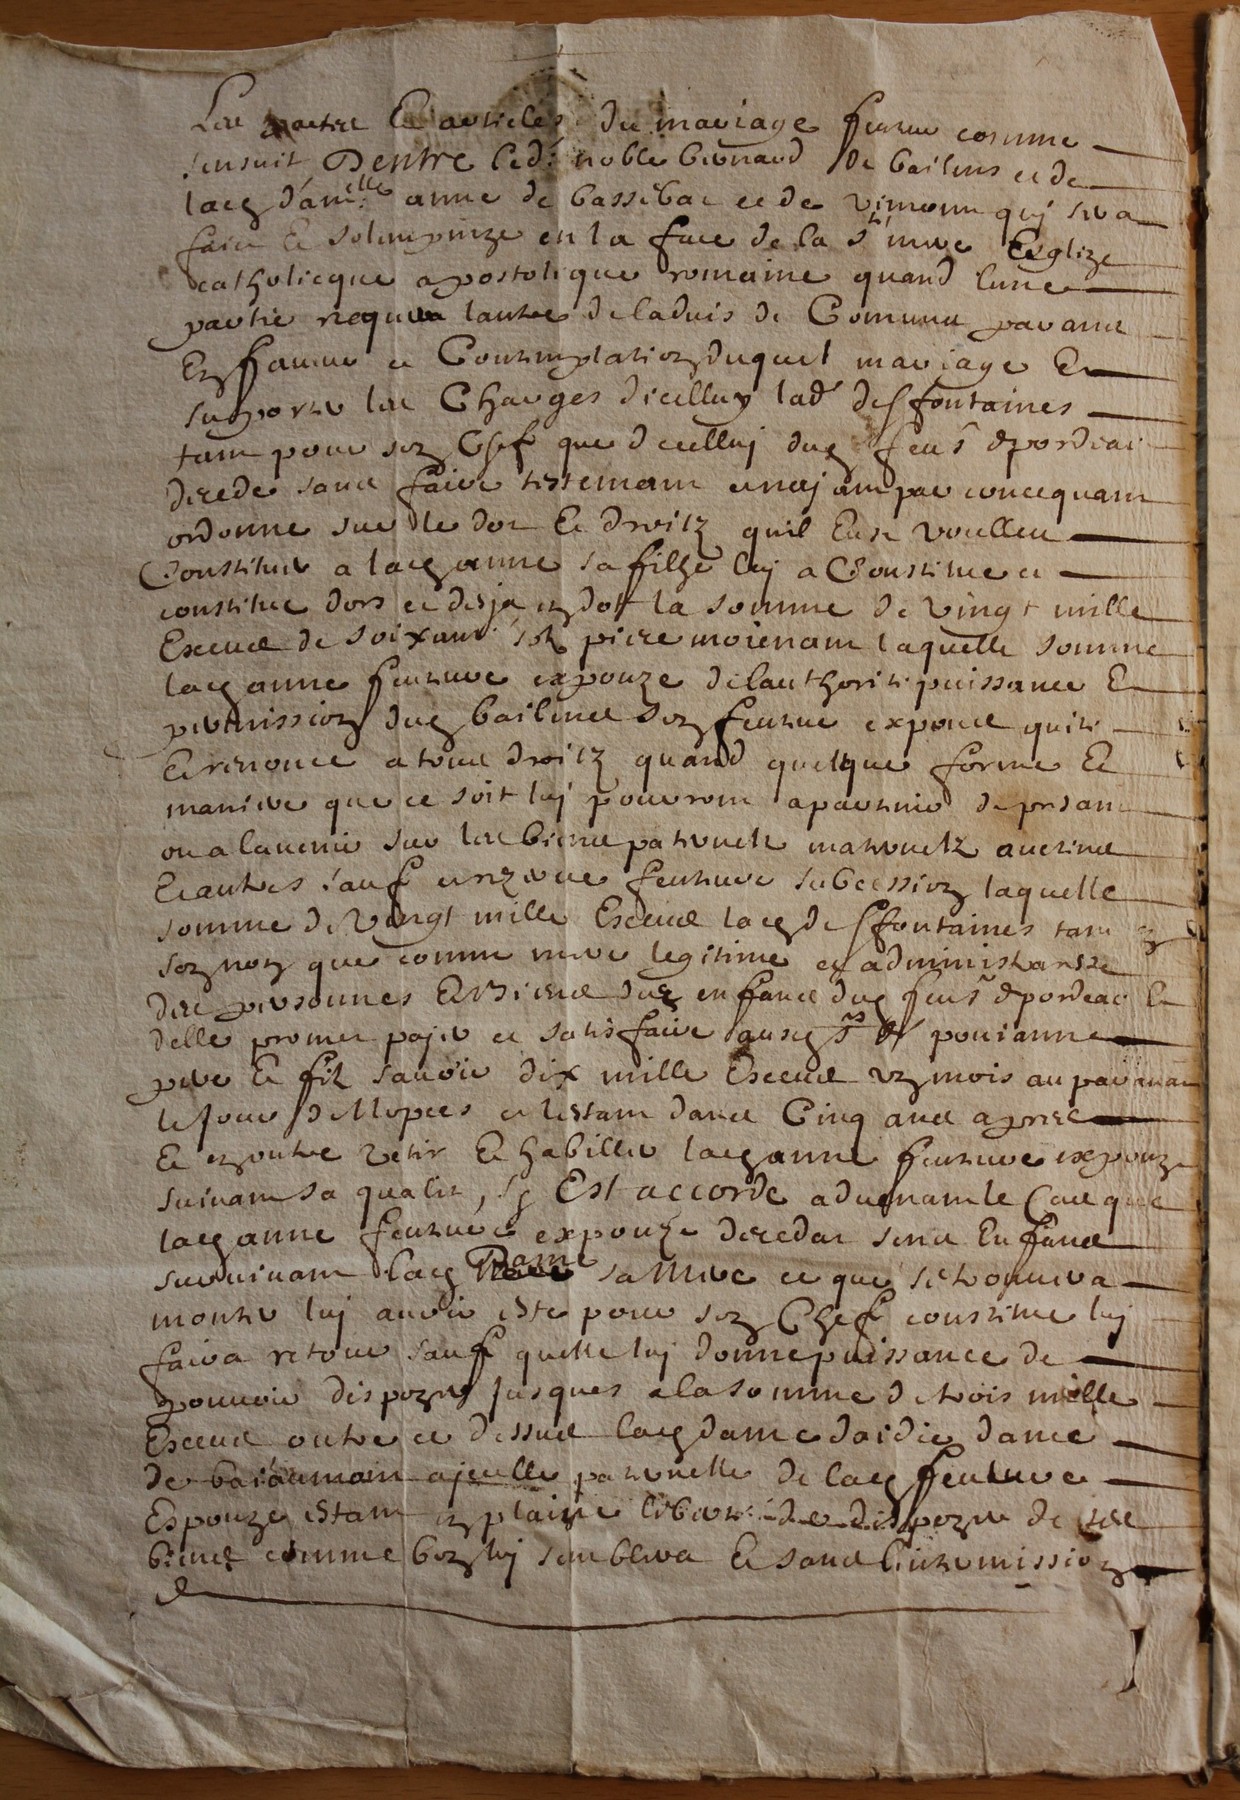 Les pactes et articles du mariage futeur comme
sensuit Dentre led: noble bernaud de bailens et de
lacq dam.elle anne de bassebat et de vimonn quj sera
faict et solempnize en la face de la s.te mere Esglize
catholicque apostolique romaine quand lune
partie requera lautre de laduis de Comuns parans
En faueur et Contemplation duquel mariage Et
suporter les Charges dicelluy lad.e desfontaines
tam pour son Chef que dicelluj dud feu s.r
decede sans faire testemam et naj am par concequam
ordonne sur le dot et droitz quil Eust voulleu
Constituer a lad anne sa filhe luj a Constitue et
constitue dors et desja en dot la somme de vingt mille
Escus de soixante solz piece moienam laquelle somme
lad anne feuture expouze de lauthorite puissance Et
permission dud bailens son feutur expous quite
Et renonce a tous droitz quand quelque forme Et
maniere que ce soit luj pourrom apartenir de presam
ou a laucnir sur les biens paternelz maternelz auctins
Et autres sauf feuture subcession laquelle
somme de vingt mille Escus lad desfontaines tam en
son nom que comme mere legitime et administraresse
des personnes Et biens des enfans dud feu s.r Et
delle promet pajer et satisfaire ausd s.rs de pouianne
pere Et filz sauoir dix mille Escus un mois au parauam
le Jour de Nopces et lestam dans Cinq ans apres
Et en outre vetir Et habiller lad anne feuture expouze
suiuam sa qualite, sy Est accorde aduenam le Cas que
lad anne feuture expouze decedat sens Enfans
suruiuam lad Dame sa Mere ce que se trouuera
monter luj auoir este pour son Chef constitue luj
faira retour sauf quelle luj donne puissance de
pouuoir dispozer jusques a la somme de trois mille
Escus outre ce dessus lad dame daidie dance
de ajeulle paternelle de lad feuture
Espouze estam en plaine liberte de dispozer de ses
biens comme bon luj semblera Et sans lintermission